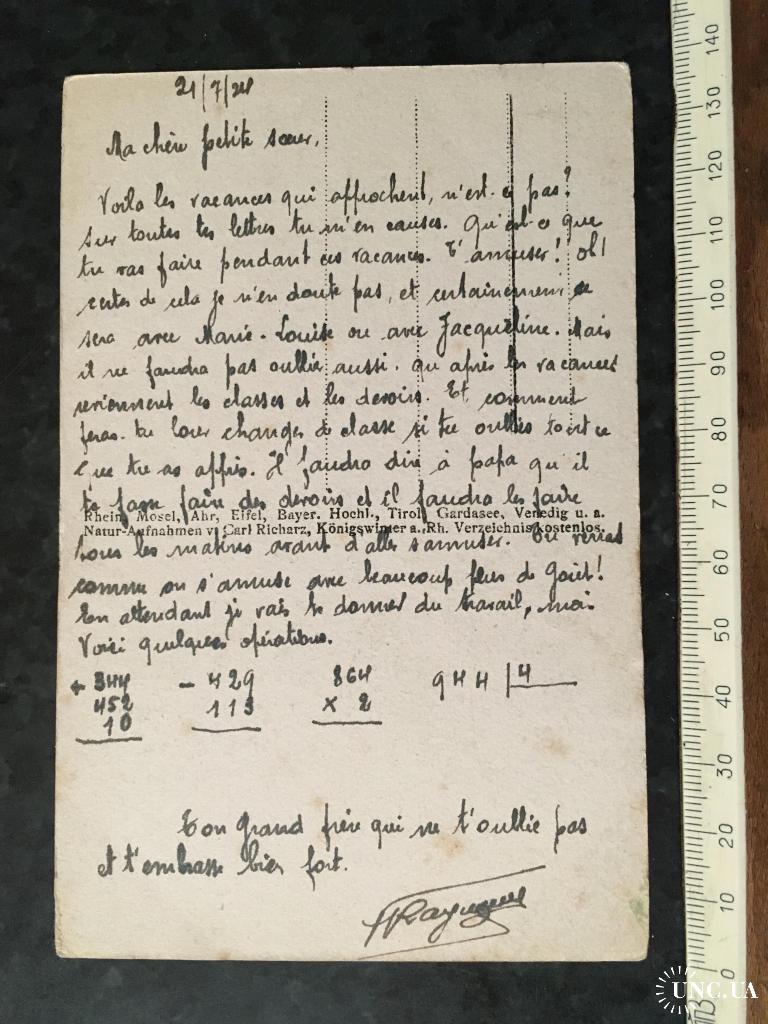 21/7/28
Ma chère petite sœur,
Voila les vacances qui approchent, n'est-ce pas?
Sur toutes tes lettres tu m'en causes. Qu'est-ce que
tu vas faire pendant ces vacances. T'amuser! Oh!
certes de cela je n'en doute pas, et certainement ce
sera avec Marie-Louise ou avec Jacqueline. Mais
il ne faudra pas oublier aussi qu'après les vacances
reviennent les classes et les devoirs. Et comment
feras-tu pour changer de classe si tu oublies tout ce
que tu as appris. Il faudra dire à papa qu'il
te fasse faire des devoirs et il faudra les faire
Rhein, Mosel, Ahr, Eifel, Bayer. Hochl., Tirol, Gardasee, Venedig u. a.
Natur-Aufnahmen v. Carl Richarz, Königswinter a. Rh. Verzeichnis kostenlos.
tous les matins avant d'aller s'amuser. Tu verras
comme on s'amuse avec beaucoup plus de goût!
En attendant je vais te donner du travail, moi.
Voici quelques opérations.
+ 344 - 429 864 944 | 4
452 113 × 2
10
Ton grand frère qui ne t'oublie pas
et t'embrasse bien fort.
140
130
120
110
100
90
80
70
60
50
40
30
20
10
0
UNC.UA